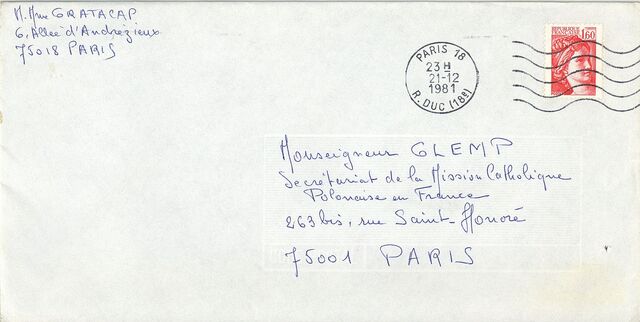 M. Mme GRATACAP
6, Allée d'Andrézieux
75018 PARIS
PARIS 18
23 H
21-12
1981
R. DUC (18e)
REPUBLIQUE FRANÇAISE
1,60
Monseigneur GLEMP
Secrétariat de la Mission Catholique
Polonaise en France
263 bis, rue Saint-Honoré
75001 PARIS